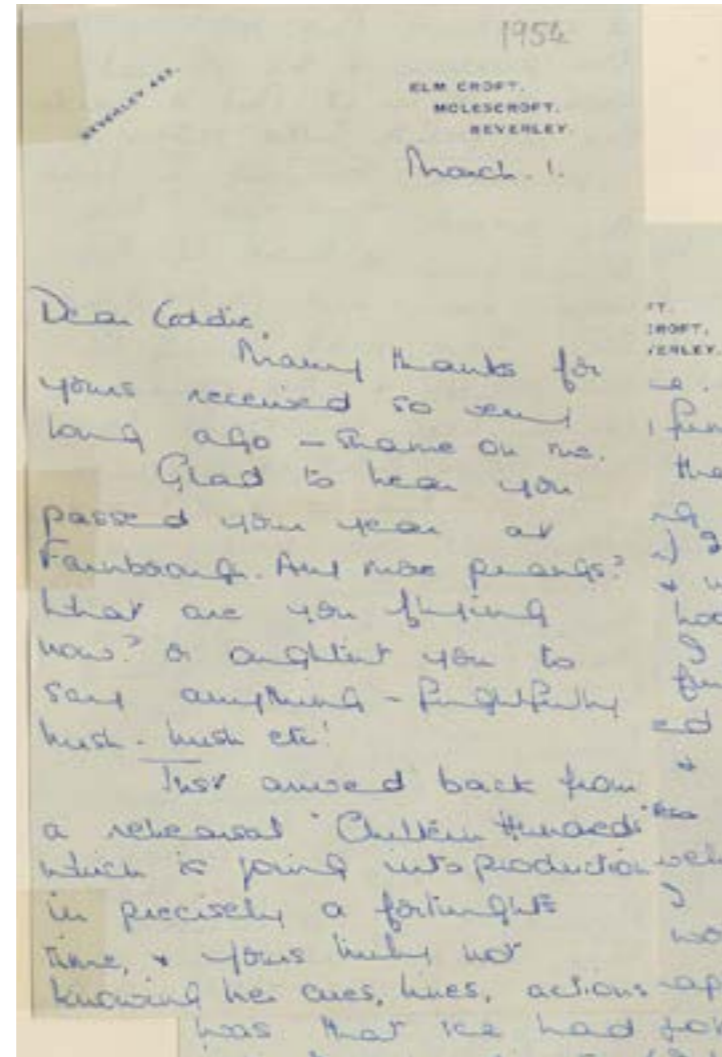 1954
BEVERLEY
ELM CROFT,
MOLESCROFT,
BEVERLEY.
March. 1.
Dear
Many thanks for
yours received so very
long ago – Shame on me.
Glad to hear you
passed your year at
Farnborough. Any more prangs?
What are you flying
now? or oughtn't you to
say anything – frightfully
hush-hush etc!
Just arrived back from
a rehearsal "Chiltern Hundreds"
which is going into production
in precisely a fortnights
time, & yours truly not
knowing her cues, lines, actions
was that we had
FT.
CROFT,
VERLEY.